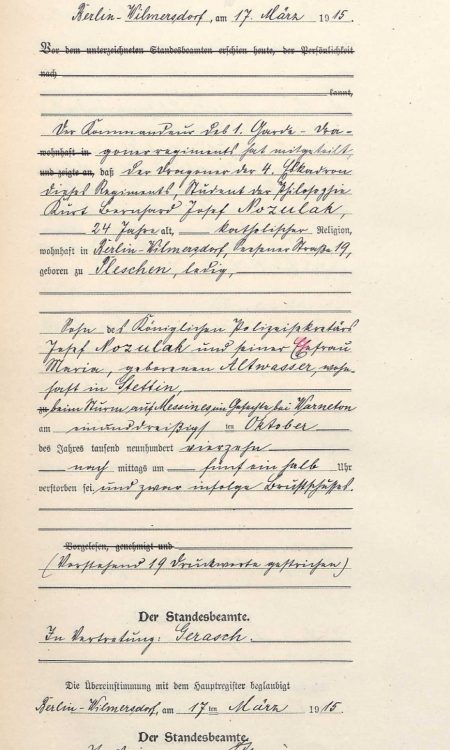 Berlin-Wilmersdorf, am 17. März 1915.
Vor dem unterzeichneten Standesbeamten erschien heute, der Persönlichkeit
nach
kannt,
Der Kommandeur des 1. Garde-Dra-
wohnhaft in gonerregiments hat mitgeteilt,
und zeigte an, daß der Dragoner der 4. Eskadron
dieses Regiments, Student der Philosophie
Kurt Bernhard Josef Nozulak,
24 Jahre alt, katholischer Religion,
wohnhaft in Berlin-Wilmersdorf, Seesener Straße 19,
geboren zu Pleschen, ledig,
Sohn des Königlichen Polizeisekretärs
Josef Nozulak und seiner Ehefrau
Maria, geborenen Altwasser, wohn-
haft in Stettin,
zu beim Sturm auf Messines im Gefechte bei Warneton
am einunddreißigsten Oktober
des Jahres tausend neunhundert vierzehn
nach mittags um fünf ein halb Uhr
verstorben sei, und zwar infolge Brustschusses.
Vorgelesen, genehmigt und
(Vorstehend 19 Druckworte gestrichen)
Der Standesbeamte.
In Vertretung: Gerasch.
Die Übereinstimmung mit dem Hauptregister beglaubigt
Berlin-Wilmersdorf, am 17ten März 1915.
Der Standesbeamte.